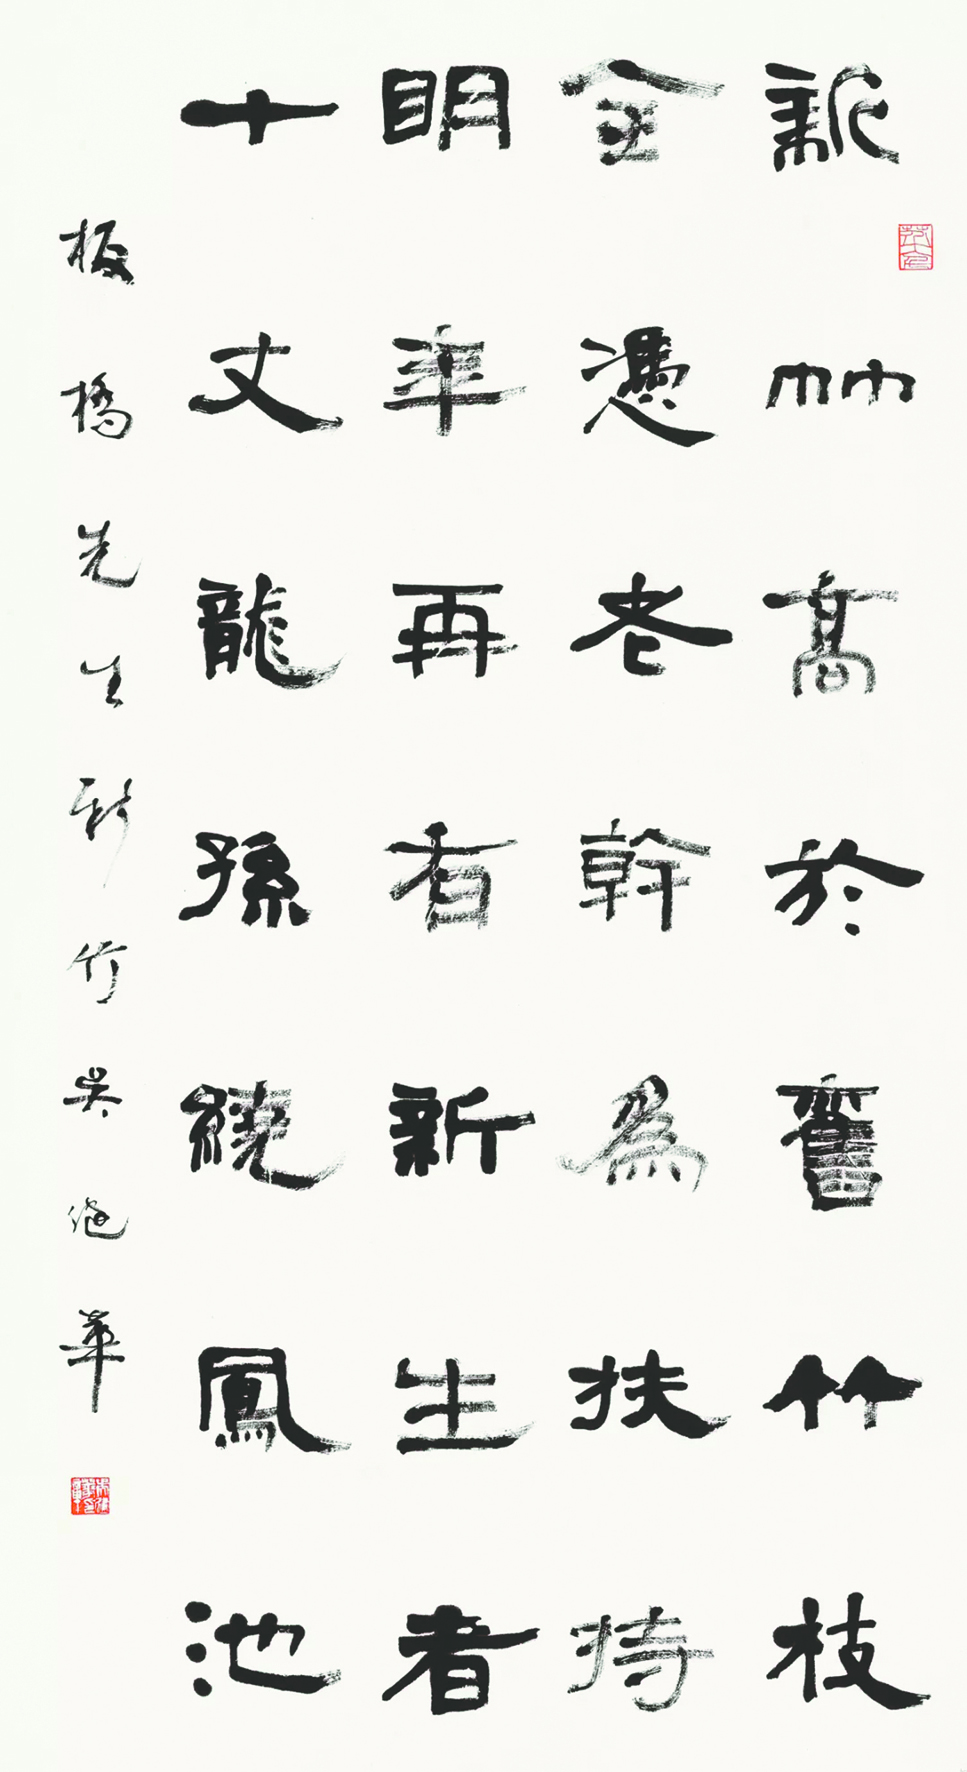 新竹高於舊竹枝
全憑老幹為扶持
明年再有新生者
十丈龍孫繞鳳池
板橋先生新竹吳繼華